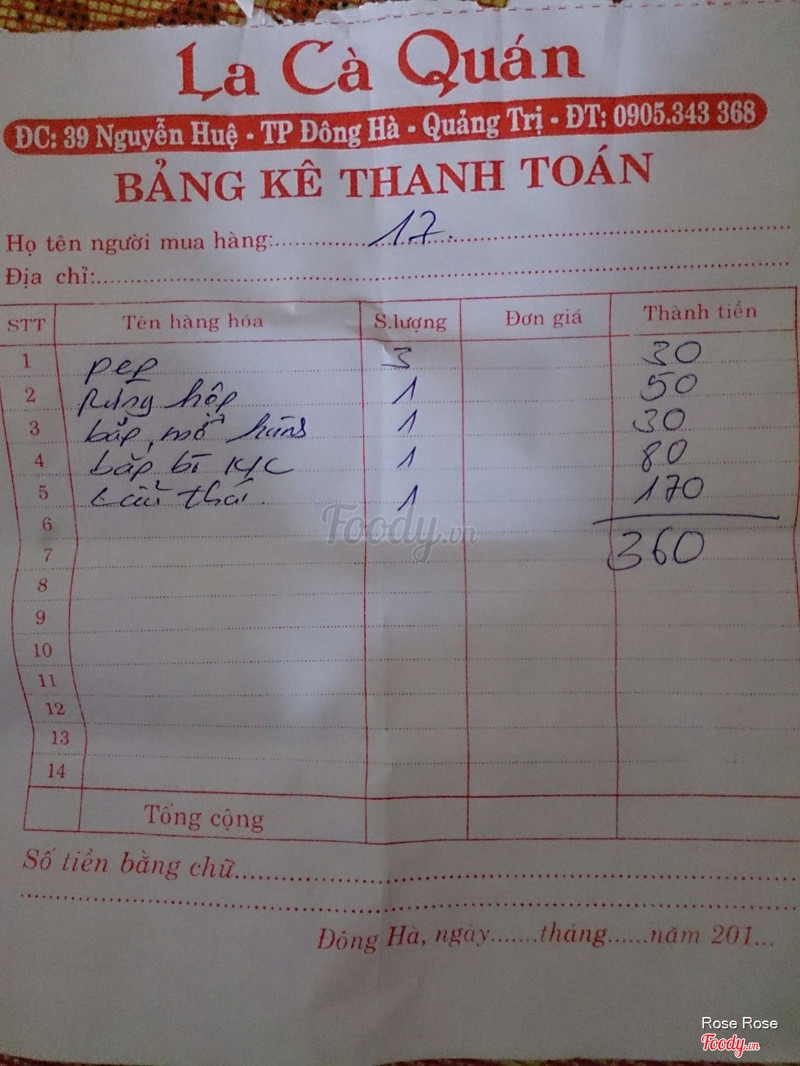 La Cà Quán
ĐC: 39 Nguyễn Huệ - TP Đông Hà - Quảng Trị - ĐT: 0905.343 368
BẢNG KÊ THANH TOÁN
Họ tên người mua hàng: 17
Địa chỉ:
STT Tên hàng hóa S.lượng Đơn giá Thành tiền
1 pep 3 30
2 hộp 1 50
3 bắp mỡ hành 1 30
4 bắp bì 1 80
5 Lẩu thái 1 170
6
7 360
8
9
10
11
12
13
14
Tổng cộng
Số tiền bằng chữ
Đông Hà, ngày.......tháng......năm 201...
Foody.vn
Rose Rose
Foody.vn